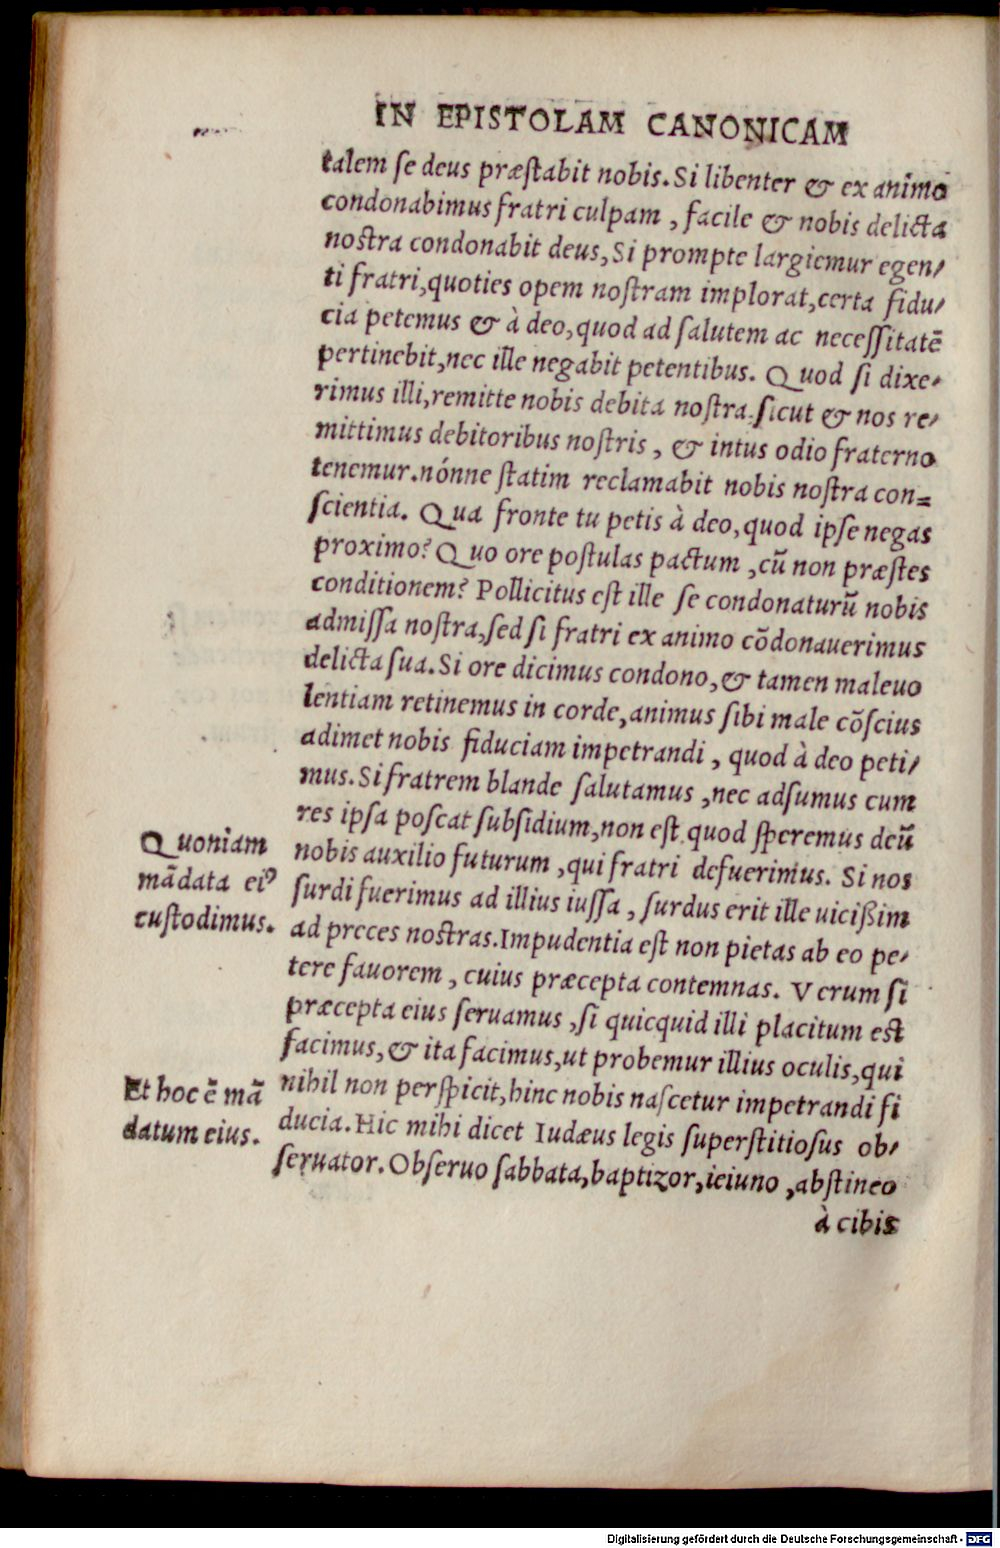 IN EPISTOLAM CANONICAM
talem ſe deus præſtabit nobis. Si libenter & ex animo
condonabimus fratri culpam, facile & nobis delicta
noſtra condonabit deus, Si prompte largiemur egen/
ti fratri, quoties opem noſtram implorat, certa fidu/
cia petemus & à deo, quod ad ſalutem ac neceſſitatē
pertinebit, nec ille negabit petentibus. Quod ſi dixe/
rimus illi, remitte nobis debita noſtra ſicut & nos re/
mittimus debitoribus noſtris, & intus odio fraterno
tenemur. nónne ſtatim reclamabit nobis noſtra con=
ſcientia. Qua fronte tu petis à deo, quod ipſe negas
proximo? Quo ore poſtulas pactum, cū non præſtes
conditionem? Pollicitus eſt ille ſe condonaturū nobis
admiſſa noſtra, ſed ſi fratri ex animo cōdonauerimus
delicta ſua. Si ore dicimus condono, & tamen maleuo
lentiam retinemus in corde, animus ſibi male cōſcius
adimet nobis fiduciam impetrandi, quod à deo peti/
mus. Si fratrem blande ſalutamus, nec adſumus cum
res ipſa poſcat ſubſidium, non eſt quod ſperemus deū
nobis auxilio futurum, qui fratri defuerimus. Si nos
ſurdi fuerimus ad illius iuſſa, ſurdus erit ille uicißim
ad preces noſtras. Impudentia eſt non pietas ab eo pe/
tere fauorem, cuius præcepta contemnas. Verum ſi
præcepta eius ſeruamus, ſi quicquid illi placitum eſt
facimus, & ita facimus, ut probemur illius oculis, qui
nihil non perſpicit, hinc nobis naſcetur impetrandi fi
ducia. Hic mihi dicet Iudæus legis ſuperſtitioſus ob/
ſeruator. Obſeruo ſabbata, baptizor, ieiuno, abſtineo
à cibis
Quoniam
mādata eiꝰ
cuſtodimus.
Et hoc ē mā
datum eius.
Digitalisierung gefördert durch die Deutsche Forschungsgemeinschaft - DFG